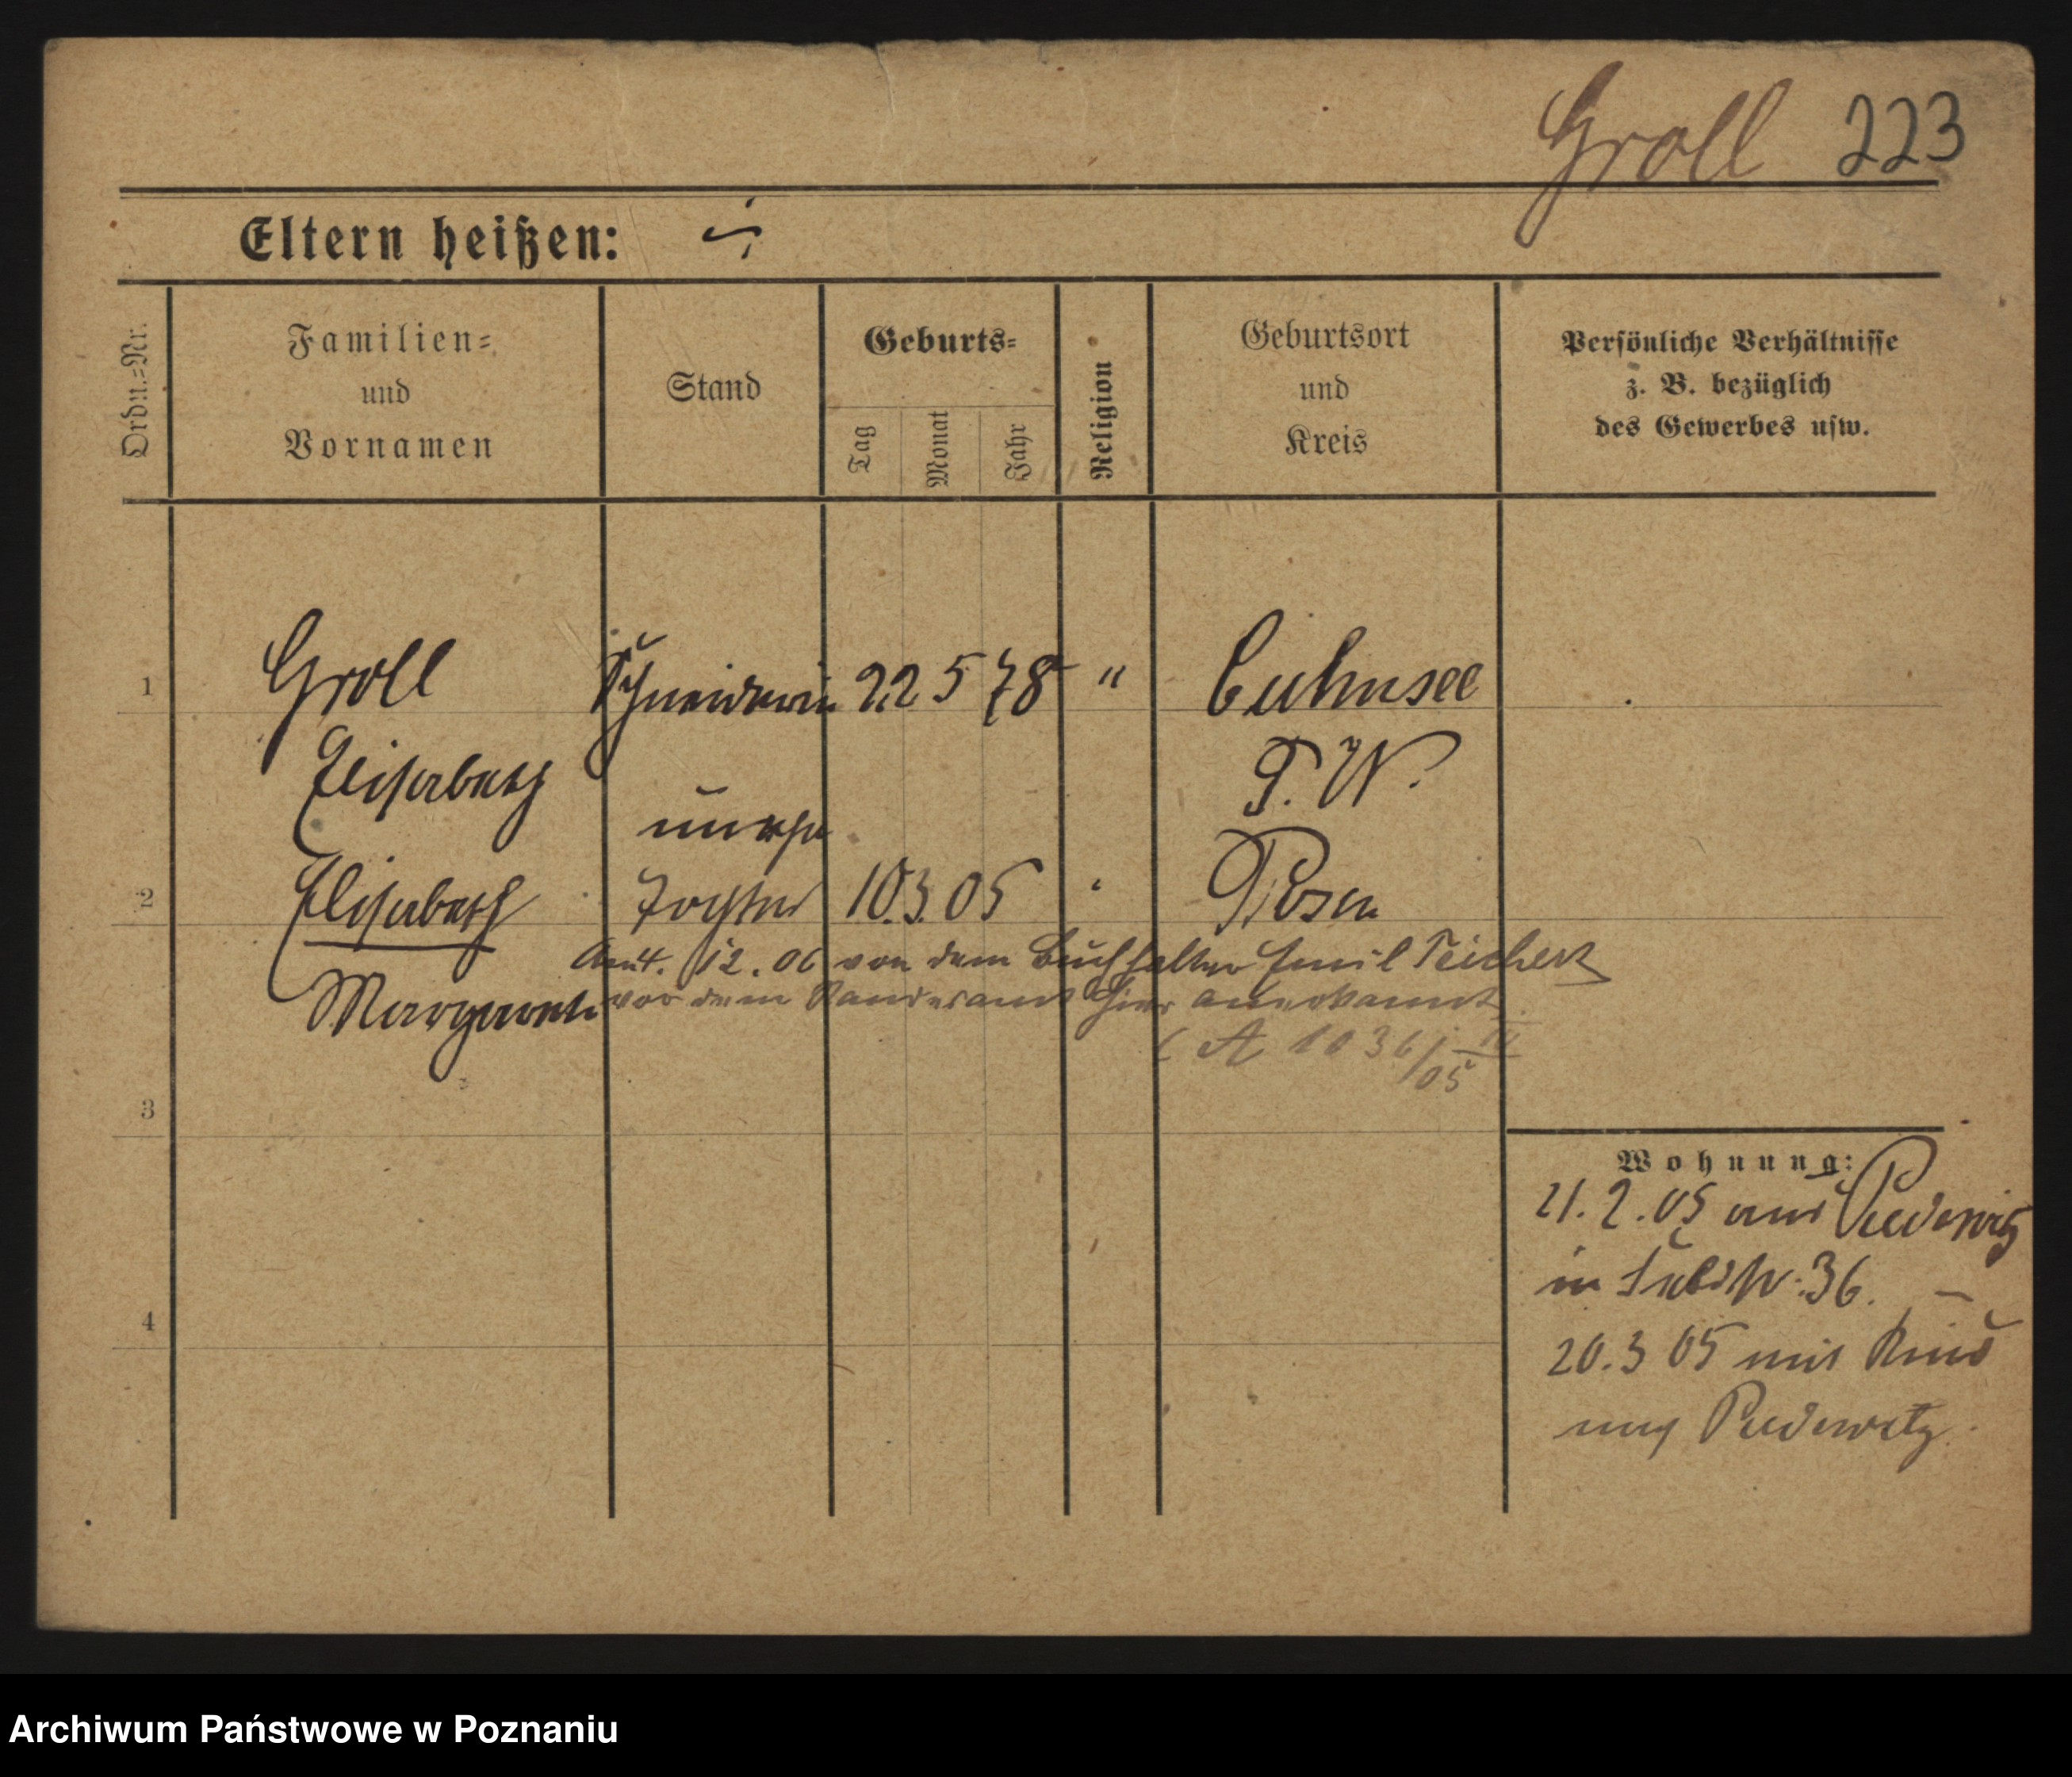 Groll 223
Eltern heißen: ÷
Ordn.=Nr.
Familien=
und
Vornamen
Stand
Geburts=
Tag
Monat
Jahr
Religion
Geburtsort
und
Kreis
Persönliche Verhältnisse
z. B. bezüglich
des Gewerbes usw.
1 Groll Schneiderin 22 5 78 " Culmsee
Elisabeth P. W.
unehe
2 Elisabeth Tochter 10.3.05 " Posen
12.06 von dem Buchhalter Emil Teichert
Margarete vor dem Standesamt hier anerkannt
( A 1036/ IV 05
3
Wohnung:
21.2.05 aus Pudewitz
in 36. –
4
20.3 05 mit Kind
nach Pudewitz.
Archiwum Państwowe w Poznaniu